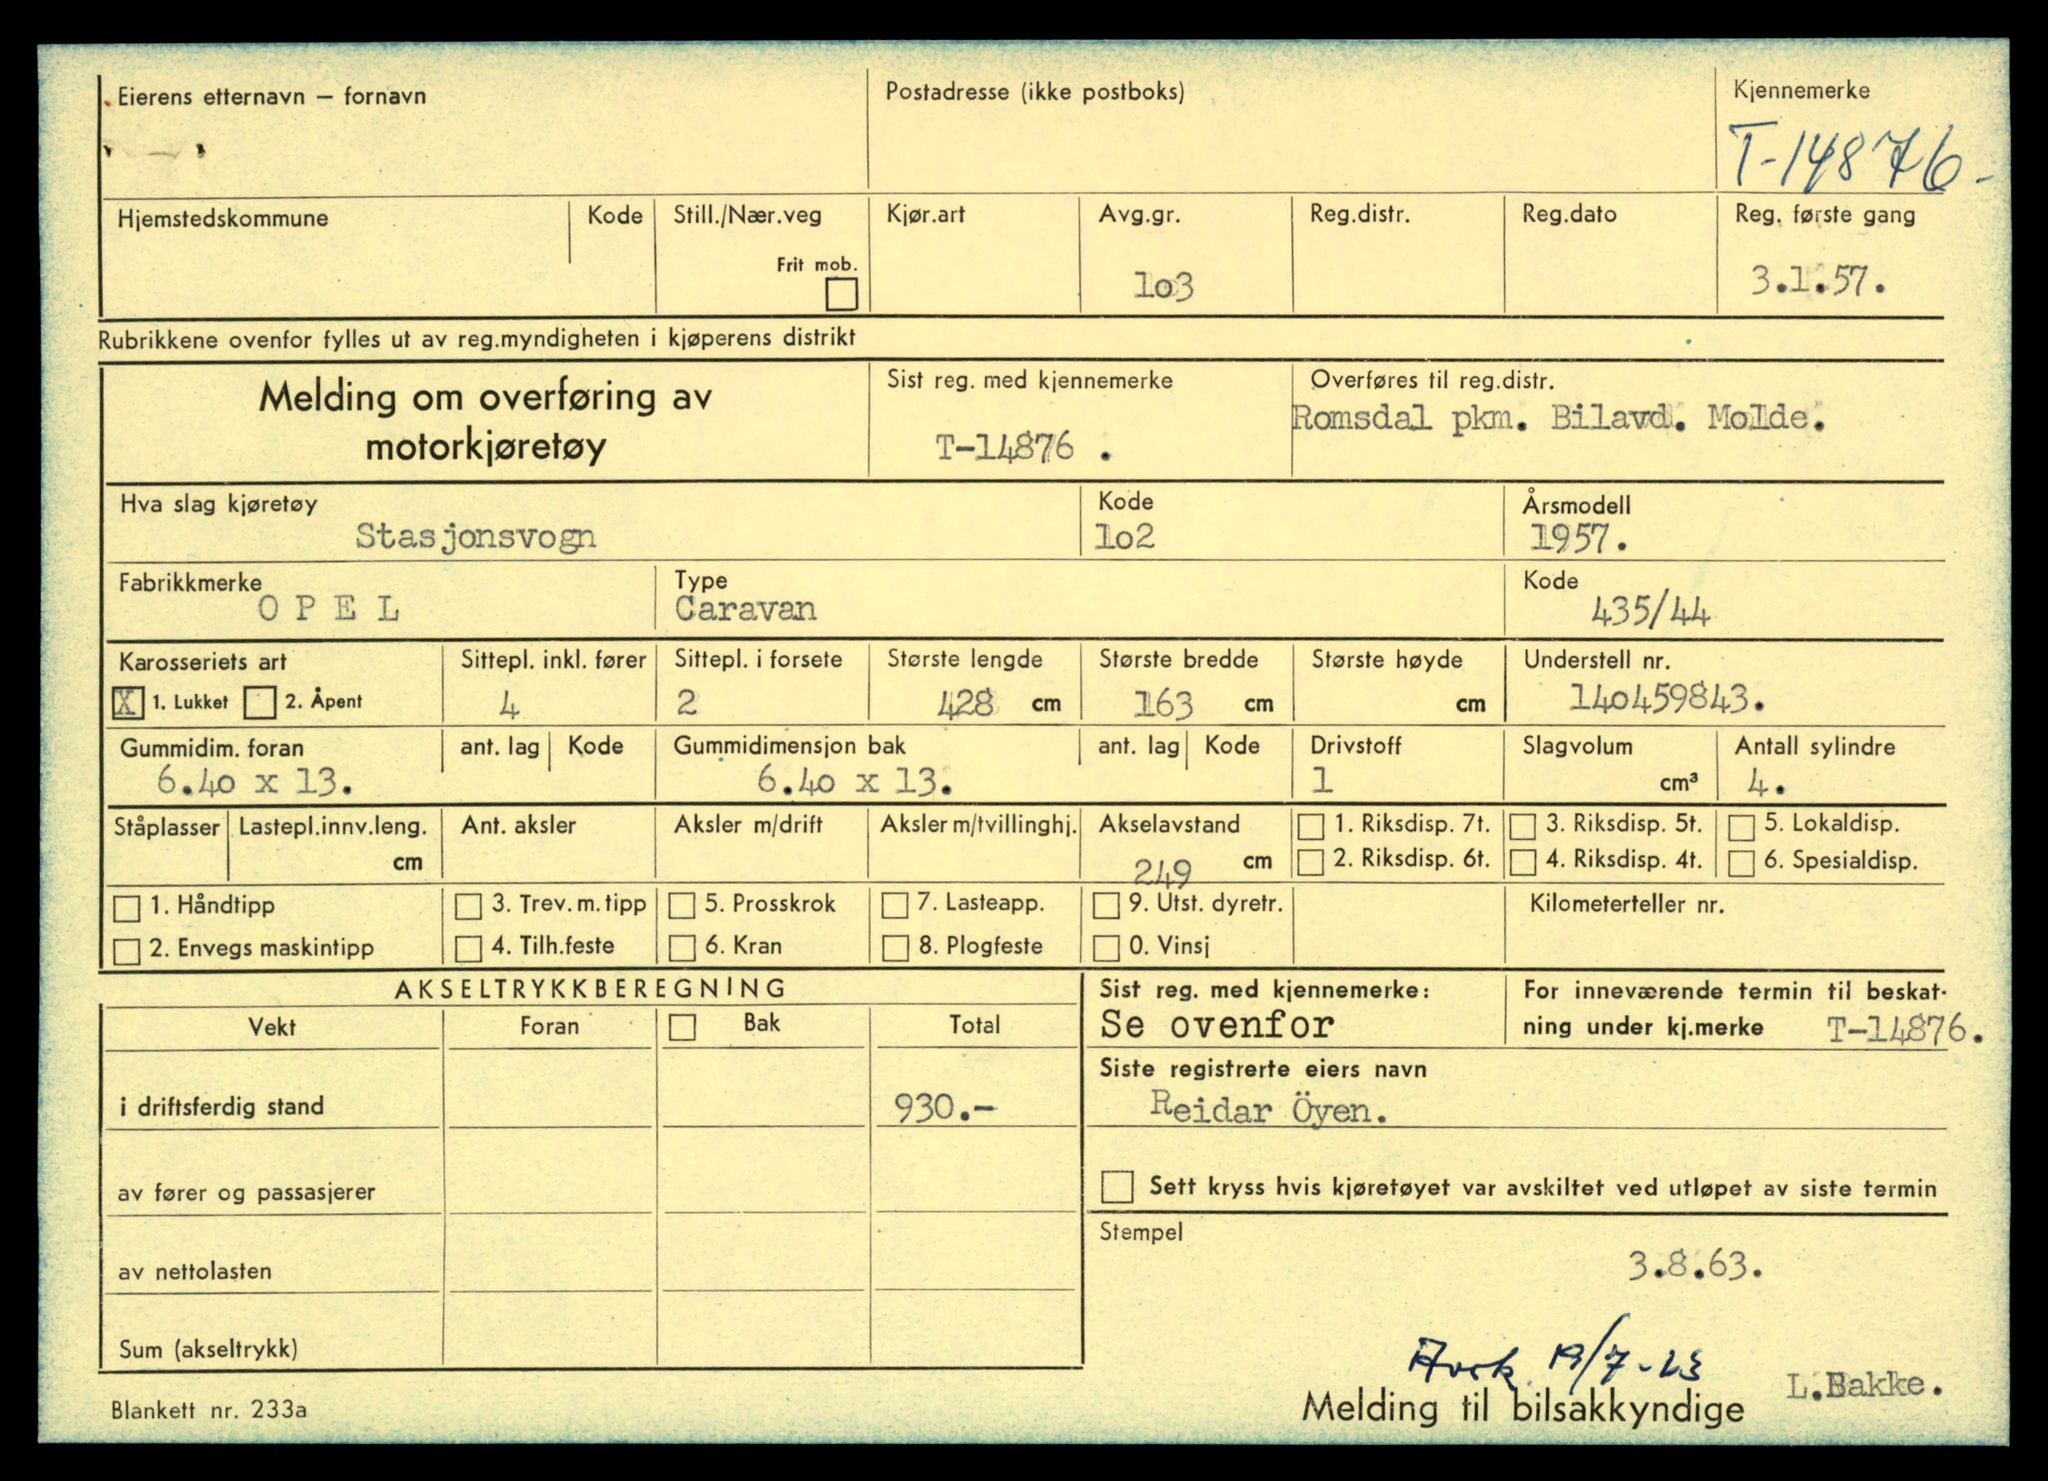 Eierens etternavn – fornavn
Postadresse (ikke postboks)
Kjennemerke
T-14876-
Hjemstedskommune
Kode
Still./Nær.veg
Frit mob.
Kjør.art
Avg.gr.
1o3
Reg.distr.
Reg.dato
Reg. første gang
3.1.57.
Rubrikkene ovenfor fylles ut av reg.myndigheten i kjøperens distrikt
Melding om overføring av
motorkjøretøy
Sist reg. med kjennemerke
T-14876 .
Overføres til reg.distr.
Romsdal pkm. Bilavd. Molde.
Hva slag kjøretøy
Stasjonsvogn
Kode
1o2
Årsmodell
1957.
Fabrikkmerke
O P E L
Type
Caravan
Kode
435/44
Karosseriets art
X 1. Lukket 2. Åpent
Sittepl. inkl. fører
4
Sittepl. i forsete
2
Største lengde
428 cm
Største bredde
163 cm
Største høyde
cm
Understell nr.
140459843.
Gummidim. foran
6.40 x 13.
ant. lag Kode
Gummidimensjon bak
6.40 x 13.
ant. lag Kode
Drivstoff
1
Slagvolum
cm³
Antall sylindre
4.
Ståplasser
Lastepl.innv.leng.
cm
Ant. aksler
Aksler m/drift
Aksler m/tvillinghj.
Akselavstand
249 cm
1. Riksdisp. 7t.
2. Riksdisp. 6t.
3. Riksdisp. 5t.
4. Riksdisp. 4t.
5. Lokaldisp.
6. Spesialdisp.
1. Håndtipp
2. Envegs maskintipp
3. Trev. m. tipp
4. Tilh.feste
5. Prosskrok
6. Kran
7. Lasteapp.
8. Plogfeste
9. Utst. dyretr.
0. Vinsj
Kilometerteller nr.
AKSELTRYKKBEREGNING
Vekt Foran Bak Total
i driftsferdig stand 930.-
av fører og passasjerer
av nettolasten
Sum (akseltrykk)
Sist reg. med kjennemerke:
Se ovenfor
For inneværende termin til beskat-
ning under kj.merke T-14876.
Siste registrerte eiers navn
Reidar Öyen.
Sett kryss hvis kjøretøyet var avskiltet ved utløpet av siste termin
Stempel
3.8.63.
L.Bakke.
Melding til bilsakkyndige
Blankett nr. 233a